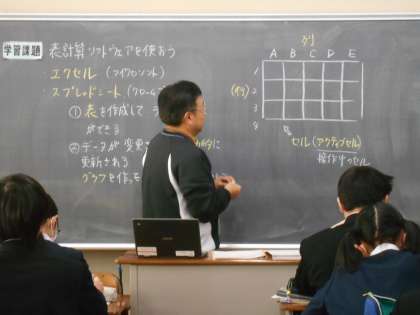 学習課題
表計算ソフトウェアを使おう
・エクセル（マイクロソフト）
・スプレッドシート（クローム
① 表を作成して
ができる
② データが変更さ
更新される
グラフを作っ
列
A B C D E
（行）
1
2
3
セル（アクティブセル）
操作中のセル